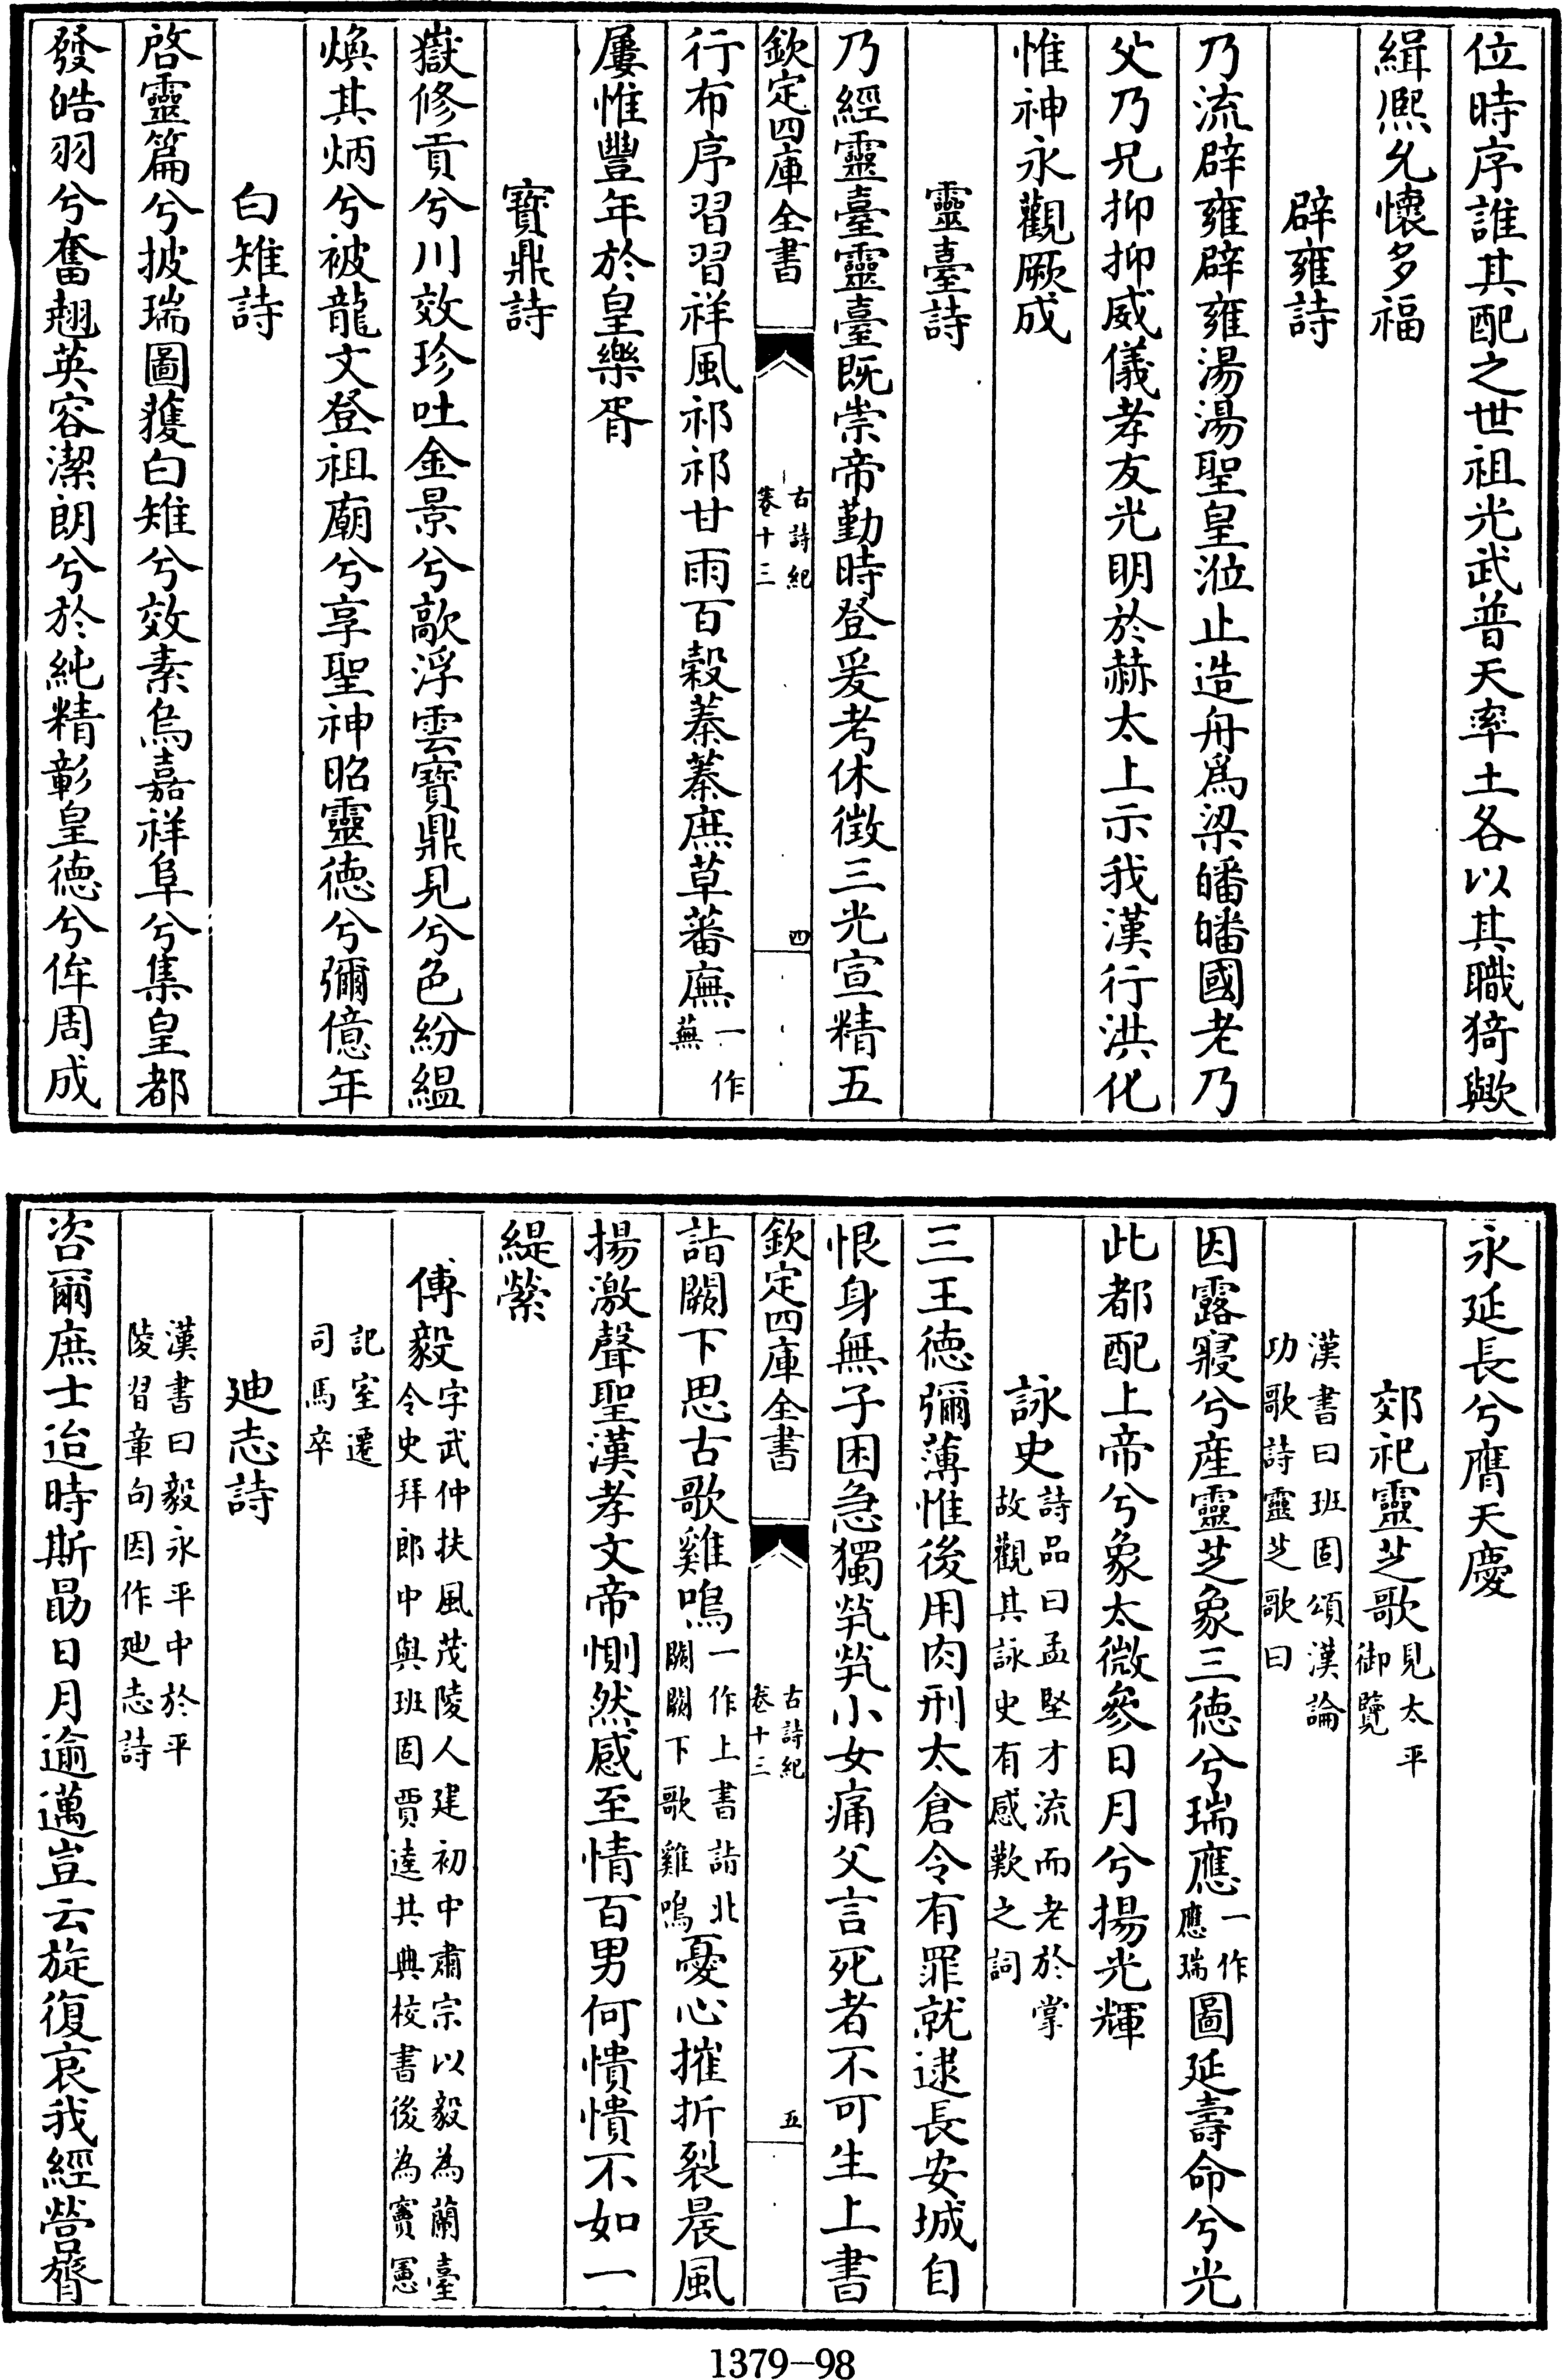 位時序誰其配之世祖光武普天率土各以其職猗歟
緝熈允懷多福
辟雍詩
乃流辟雍辟雍湯湯聖皇涖止造舟爲梁皤皤國老乃
父乃兄抑抑威儀孝友光明於赫太上示我漢行洪化
惟神永觀厥成
靈臺詩
乃經靈臺靈臺既崇帝勤時登爰考休徴三光宣精五
欽定四庫全書
古詩紀
卷十三
四
行布序習習祥風祁祁甘雨百穀蓁蓁庶草蕃廡一作
蕪
屢惟豐年於皇樂胥
寶鼎詩
嶽修貢兮川效珍吐金景兮歊浮雲寶鼎見兮色紛緼
煥其炳兮被龍文登祖廟兮享聖神昭靈徳兮彌億年
白雉詩
啓靈篇兮披瑞圖獲白雉兮效素烏嘉祥阜兮集皇都
發皓羽兮奮翹英容潔朗兮於純精彰皇徳兮侔周成
永延長兮膺天慶
郊祀靈芝歌見太平
御覽
漢書曰班固頌漢論
功歌詩靈芝歌曰
因露寢兮産靈芝象三徳兮瑞應一作
應瑞圖延壽命兮光
此都配上帝兮象太微參日月兮揚光輝
詠史詩品曰孟堅才流而老於掌
故觀其詠史有感歎之詞
三王徳彌薄惟後用肉刑太倉令有罪就逮長安城自
恨身無子困急獨煢煢小女痛父言死者不可生上書
欽定四庫全書
古詩紀
卷十三
五
詣闕下思古歌雞鳴一作上書詣北
闕闕下歌雞鳴憂心摧折裂晨風
揚激聲聖漢孝文帝惻然感至情百男何憒憒不如一
緹縈
傅毅字武仲扶風茂陵人建初中肅宗以毅為蘭臺
令史拜郎中與班固賈逵共典校書後為竇憲
記室遷
司馬卒
廸志詩
漢書曰毅永平中於平
陵習章句因作廸志詩
咨爾庶士迨時斯勗日月逾邁豈云旋復哀我經營膂
1379-98